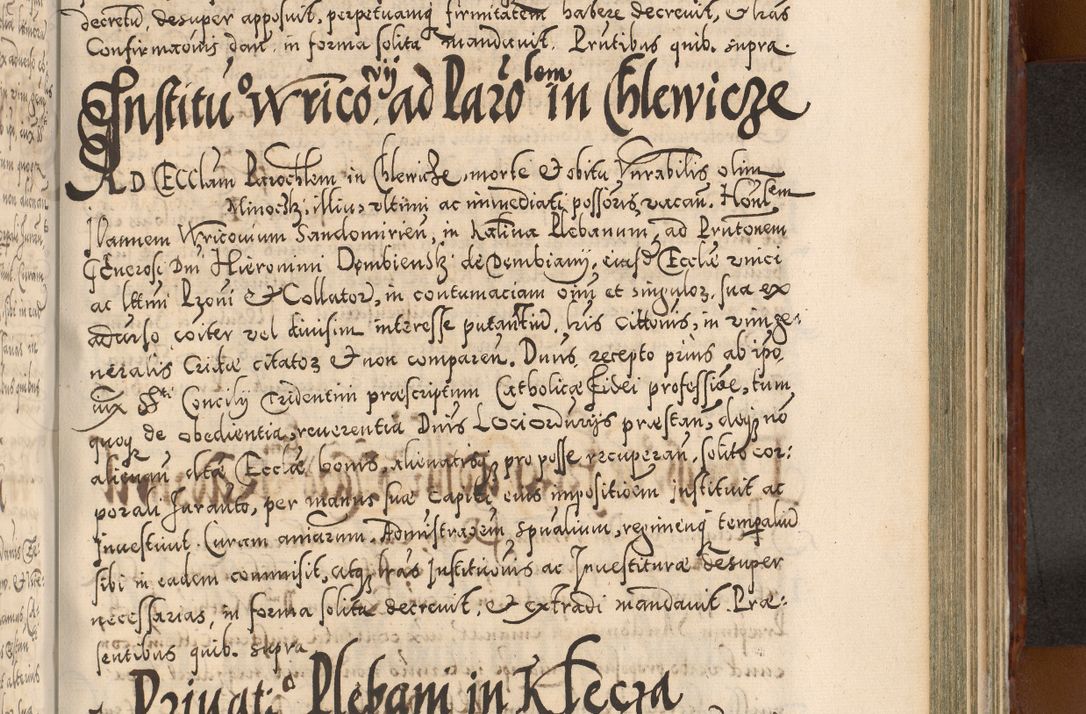 decretū desuper apposuit, perpetuamq firmitatem habere decreuit, & lr̃as
Confirmaōnis dari in forma solita mandauit. Pn̄tibus quib. supra.
Institũo Wrico.vij ad Parōlem in Chlewicze
AD Ecclam Parochlem in Chlewicze, morte & obitu Vn̄rabilis olim
Minocsk, illius vltimi ac immediati possōris vacan. Honlem
Joannem Wricouium Sandomirien, in Katina Plebanum, ad Pn̄tonem
Generosi Dn̄i Hieronimi Dembiensk de Dembiany, eiusd Ecclæ vnici
ac lttimi Pr̃oni & Collator, in contumaciam om̄i et singuloꝝ, sua ex
aduerso coīter vel diuisim interesse putantiū, lr̃is Cittōnis, in vim ge:
neralis Cridæ citatoꝝ & non comparen. Dn̄us, recepto prius ab ip̄o,
iux SSti Concilij Tridentini præscriptum Catholicæ Fidei professioe, tum
quoq de obedientia, reuerentia Dn̄is Lociordinrijs præstan, deq nō
alienan. dictæ Ecclæ bonis, alienatisq, pro posse recuperan, solito cor:
porali Juranto, per manus suæ Capiti eius impositioēm instituit ac
Inuestiuit. Curam animarum, Administraōem Spūalium, regimenq temp̄aliū
sibi in eadem commisit, atq lr̃as Institūonis ac Inuestituræ desuper
necessarias, in forma solita decreuit, & extradi mandauit. Præ:
sentibus quib. supra
Priuat:o Plebani in Klecza